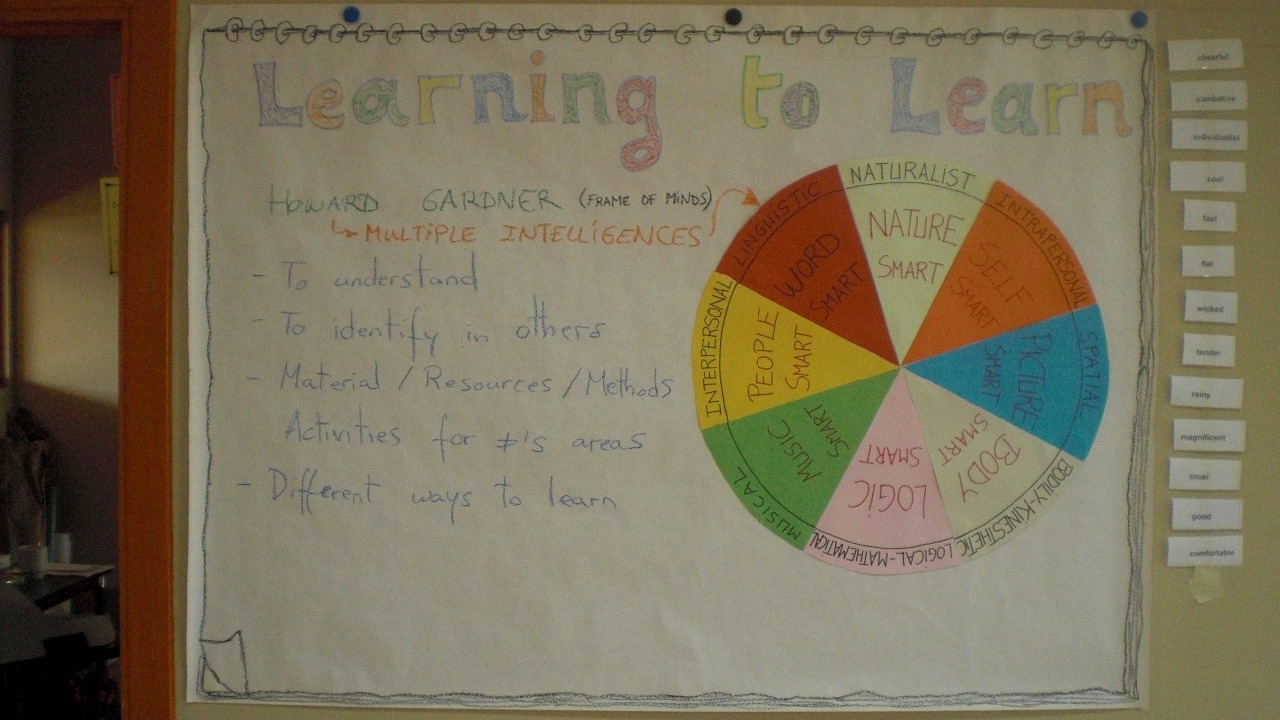 Learning to Learn
HOWARD GARDNER (FRAME OF MiNDS)
MULTIPLE INTELLiGENCES
- To understand
- To identify in others
- Material / Resources / Methods
Activities for ≠'s areas
- Different ways to learn
LINGUISTIC
WORD
SMART
NATURALIST
NATURE
SMART
INTRAPERSONAL
SELF
SMART
SPATIAL
PICTURE
SMART
BODILY-KINESTHETIC
BODY
SMART
LOGICAL-MATHEMATICAL
LOGiC
SMART
MUSICAL
MUSIC
SMART
INTERPERSONAL
PEOPLE
SMART
cheerful
combative
individualist
cool
fast
flat
wicked
tender
rainy
magnificent
cruel
good
comfortable